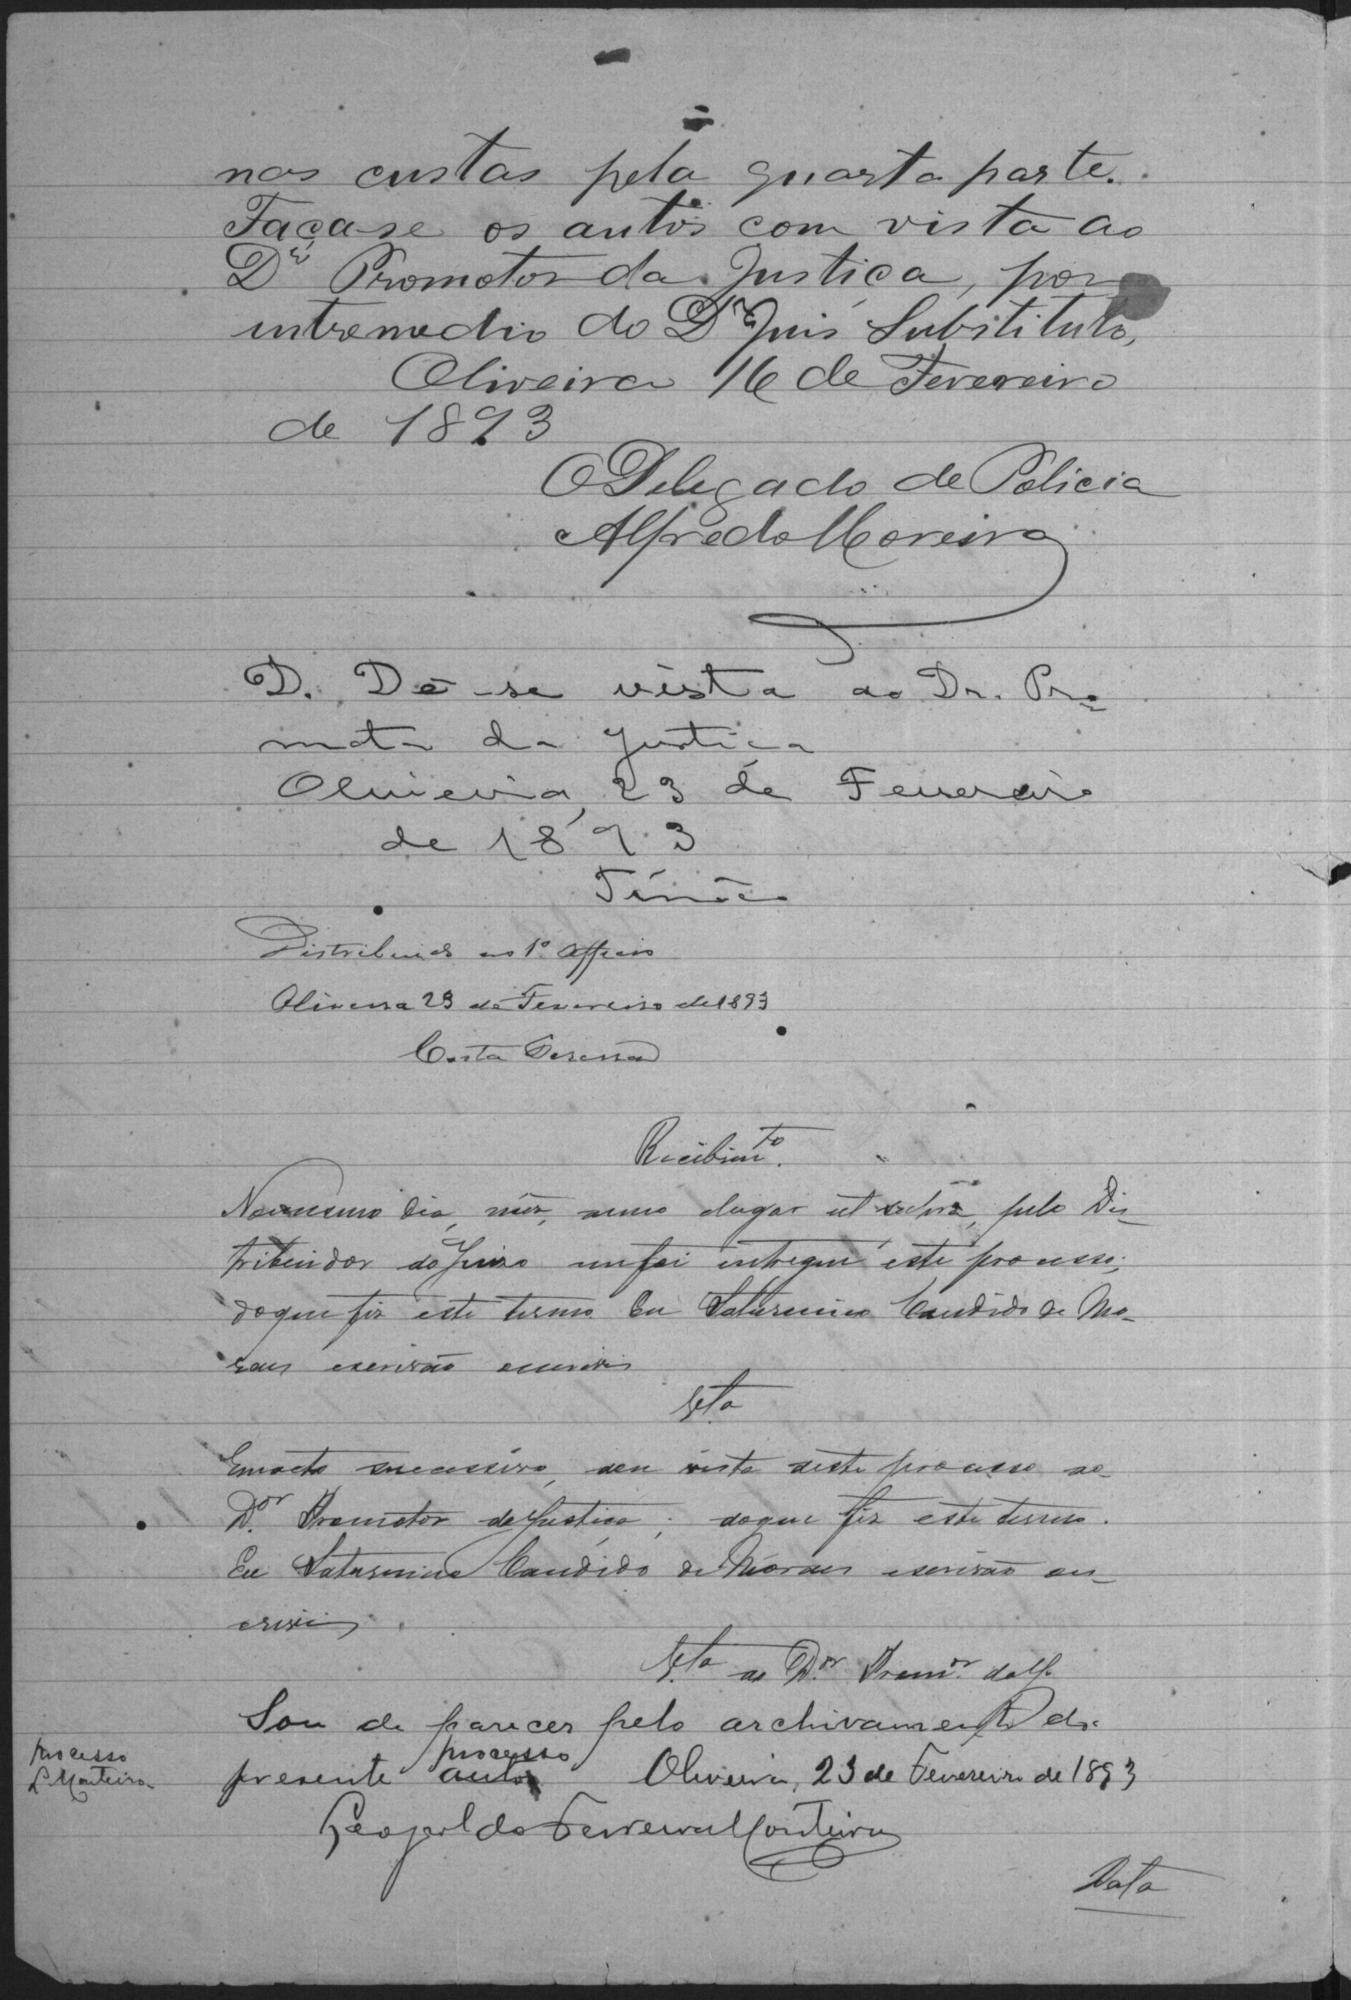 nas custas pela quarta parte.
Faça-se os autos com vista ao
Dr Promotor da Justiça, por
intremedio do Dr Juis Substituto,
Oliveira 16 de Fevereiro
de 1893
O Delegado de Policia
Alfredo Moreira
D. Dê-se vista ao Dr. Pro-
motor da Justiça
Oliveira, 23 de Fevereiro
de 1893
Distribuido ao 1º Officio
Oliveira 23 de Fevereiro de 1893
Costa
Recebimto.
No mesmo dia, mez, anno e lugar ut supra, pelo Dis-
tribuidor do Juizo me foi entregue este processo;
do que fiz este termo. Eu Saturnino Candido de Mo-
raes escrivão escrevi
Vta
Em acto successivo, dou vista deste processo ao
Dor. Promotor da Justiça; do que fiz este termo.
Eu Saturnino Candido de Moraes escrivão es-
crevi
Vta ao Dor. Promor. da J.
Sou de parecer pelo archivamento do
processo
presente autos Oliveira, 23 de Fevereiro de 1893
processo
L Monteiro
Leopoldo Ferreira Monteiro
Data